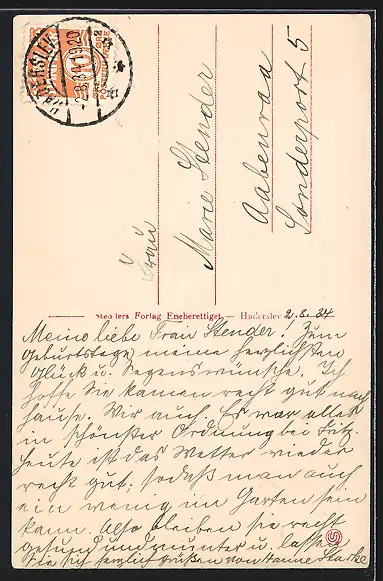 HADERSLEV
2.8.34.19-20
10
Frau
Marie Stender
Aabenraa
Sönderport 5
Forlag Eneberettiget. — Haderslev 2.8.34
Meine liebe Frau Stender! Zum
Geburtstage meine herzlichsten
Glück u. Segenswünsche. Ich
hoffe Sie kamen recht gut nach
Hause. Wir auch. Es war alles
in schönster Ordnung bei Fritz.
Heute ist das Wetter wieder
recht gut, sodaß man auch
ein wenig im Garten sein
kann. Also bleiben Sie recht
gesund und munter u. lassen
Sie sich herzlich grüßen von Hanne Starke